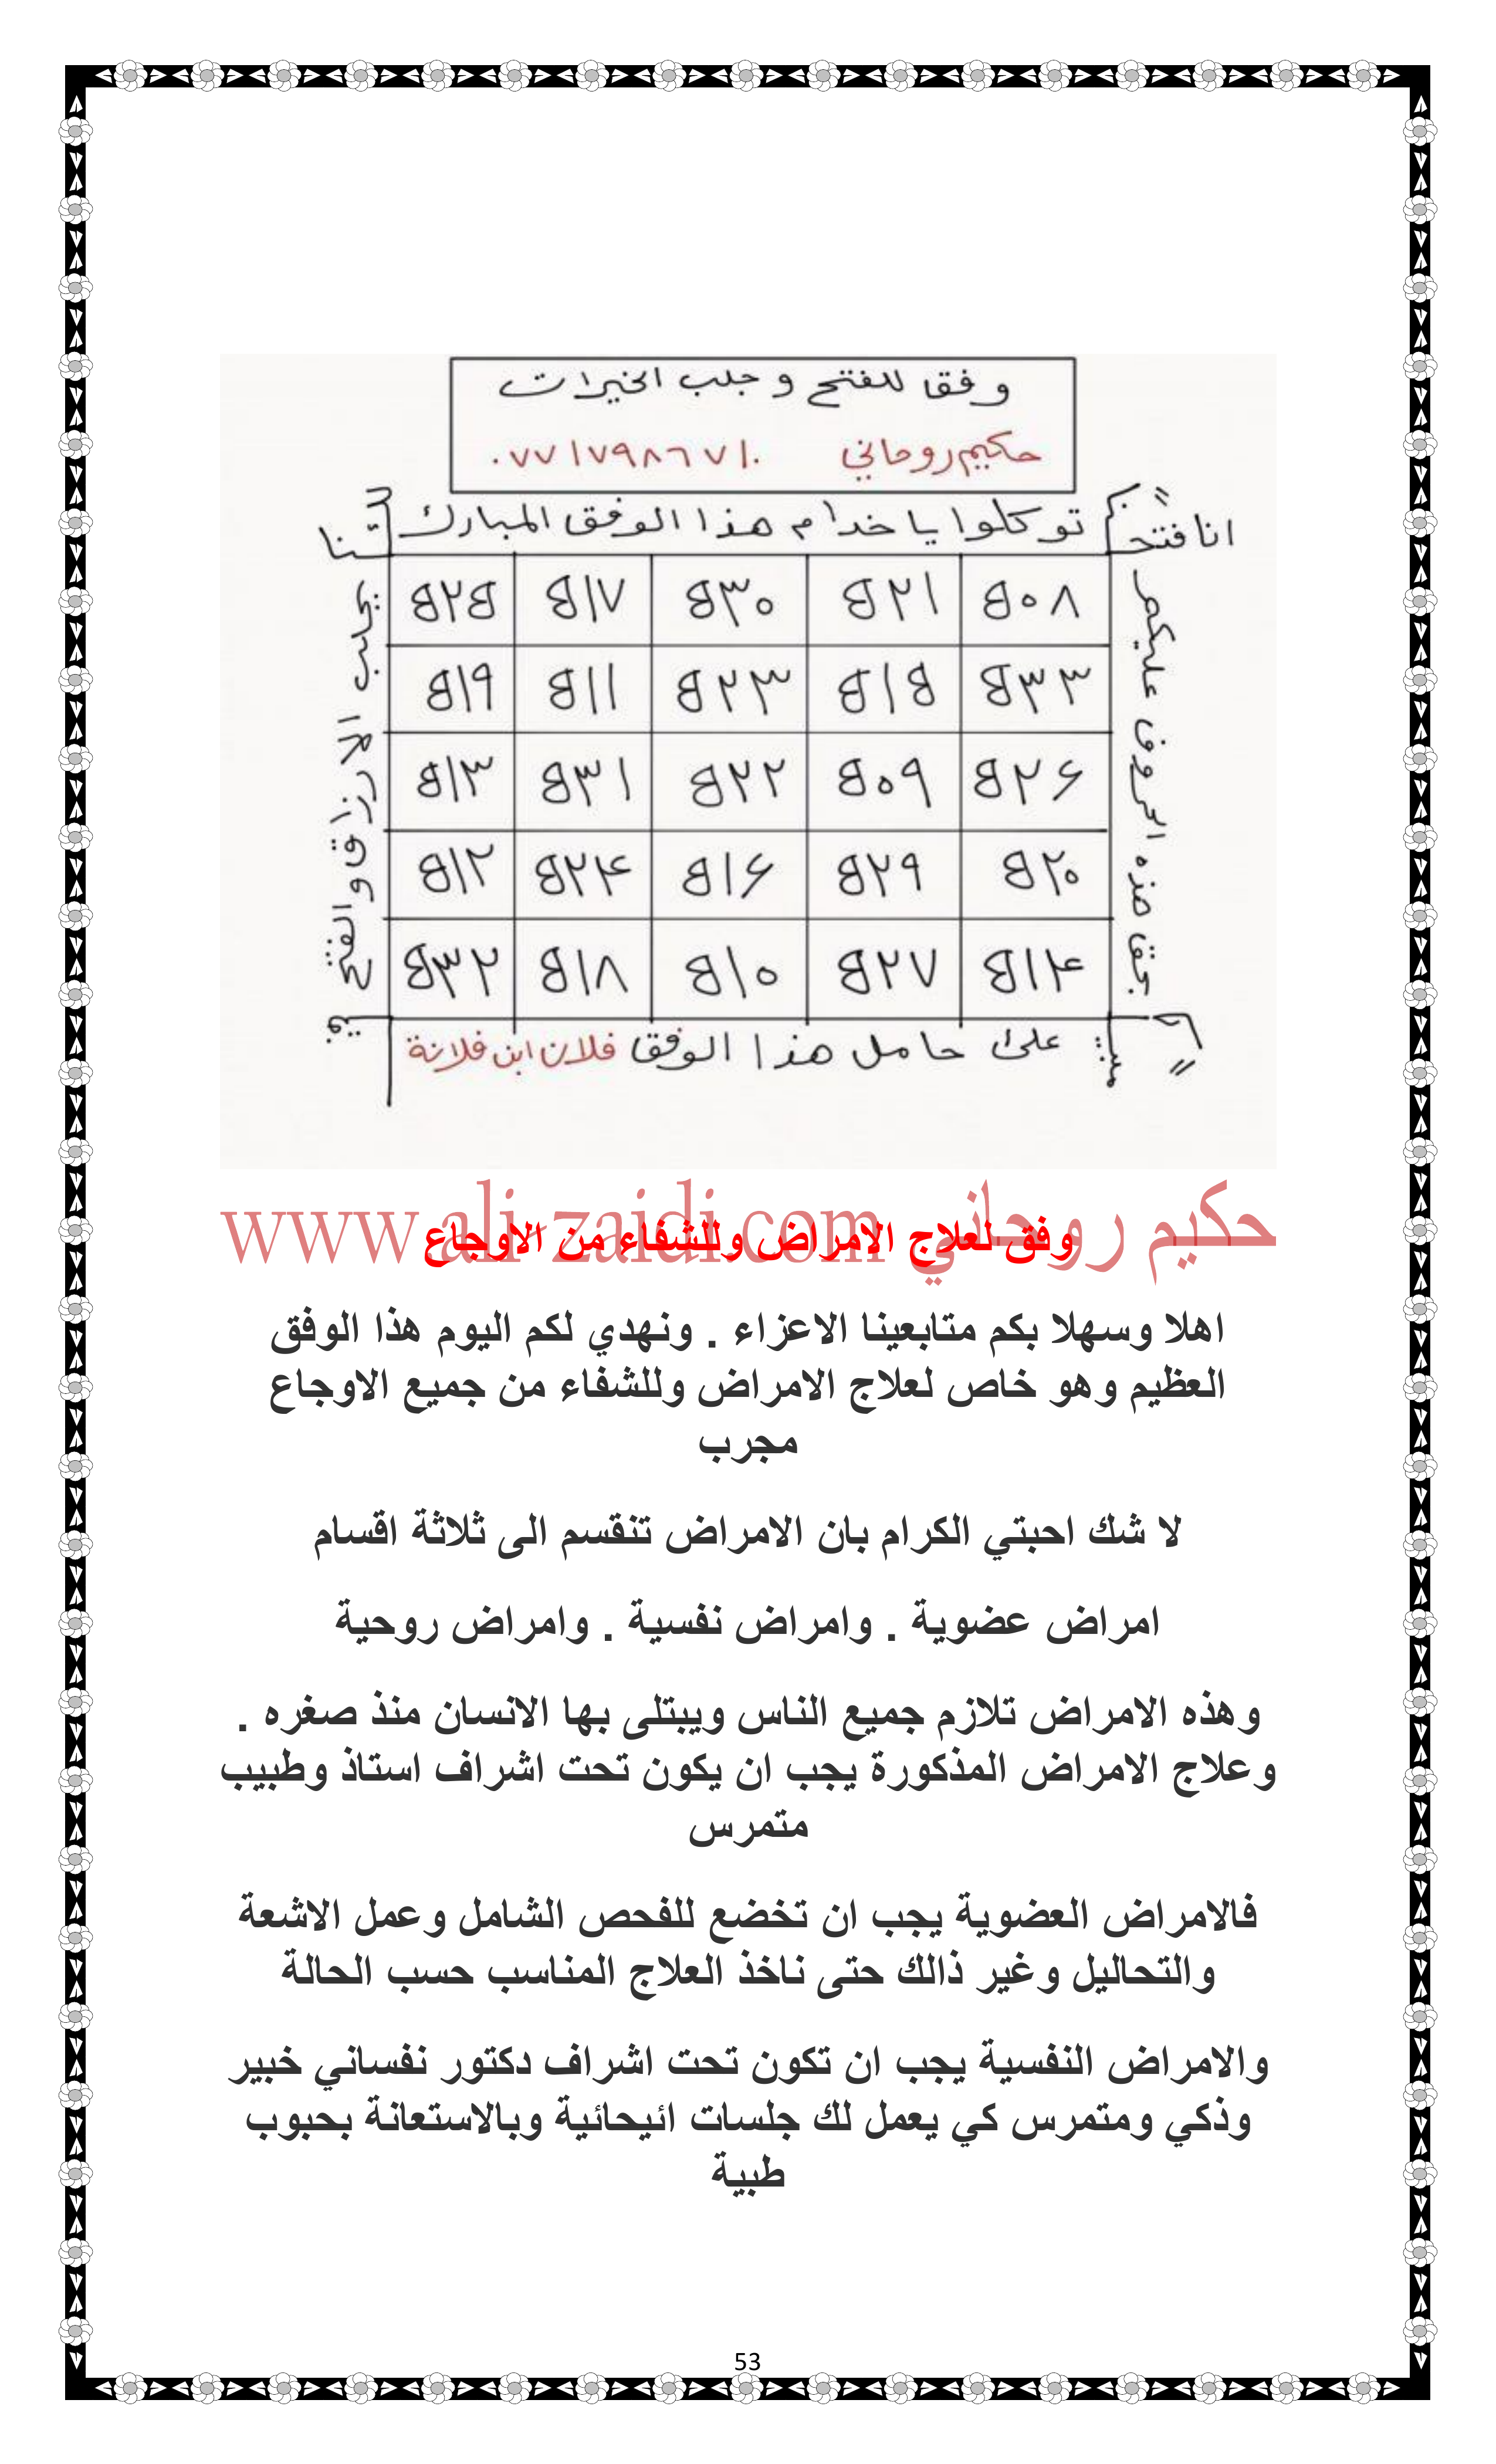 وفق للفتح و جلب الخيرات
حكيم روحاني ٠٧٧١٧٩٨٦٧١٠
انا فتحـ توكلوا يا خدام هذا الوفق المبارك ـنا
۵۰۸ ۵۲۱ ۵۳۰ ۵۱۷ ۵۲۵
۵۳۳ ۵۱۵ ۵۲۳ ۵۱۱ ۵۱۹
۵۲۶ ۵۰۹ ۵۲۲ ۵۳۱ ۵۱۳
۵۲۰ ۵۲۹ ۵۱۶ ۵۲۴ ۵۱۲
۵۱۴ ۵۲۷ ۵۱۰ ۵۱۸ ۵۳۲
بحق هذه الحروف عليكم
بجلب الارزاق والفتح
على حامل هذا الوفق فلان ابن فلانة
حكيم روحاني www.ali-zaidi.com
وفق لعلاج الامراض وللشفاء من الاوجاع
اهلا وسهلا بكم متابعينا الاعزاء . ونهدي لكم اليوم هذا الوفق
العظيم وهو خاص لعلاج الامراض وللشفاء من جميع الاوجاع
مجرب
لا شك احبتي الكرام بان الامراض تنقسم الى ثلاثة اقسام
امراض عضوية . وامراض نفسية . وامراض روحية
وهذه الامراض تلازم جميع الناس ويبتلى بها الانسان منذ صغره .
وعلاج الامراض المذكورة يجب ان يكون تحت اشراف استاذ وطبيب
متمرس
فالامراض العضوية يجب ان تخضع للفحص الشامل وعمل الاشعة
والتحاليل وغير ذالك حتى ناخذ العلاج المناسب حسب الحالة
والامراض النفسية يجب ان تكون تحت اشراف دكتور نفساني خبير
وذكي ومتمرس كي يعمل لك جلسات ائيحائية وبالاستعانة بحبوب
طبية
53